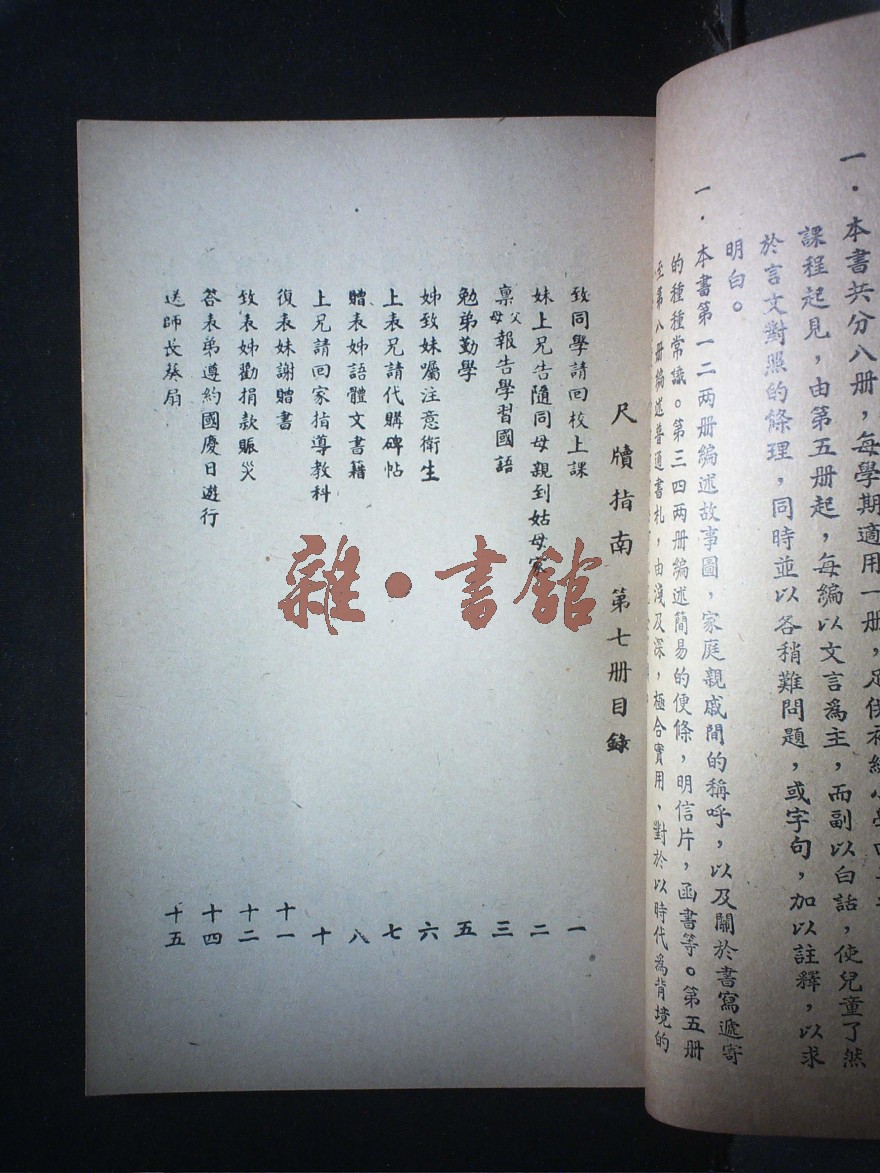 一．本書共分八册，每學期適用一册，足供初級小學四
課程起見，由第五册起，每編以文言爲主，而副以白話，使兒童了然
於言文對照的條理，同時並以各稍難問題，或字句，加以註釋，以求
明白。
一．本書第一二两册編述故事圖，家庭親戚間的稱呼，以及關於書寫遞寄
的種種常識。第三四两册編述簡易的便條，明信片，函書等。第五册
至第八册編述普通書札，由淺及深，極合實用，對於以時代爲背境的
尺牘指南 第七册目錄
致同學請回校上課 一
妹上兄告隨同母親到姑母家 二
禀父母報告學習國語 三
勉弟勤學 五
姊致妹囑注意衛生 六
上表兄請代購碑帖 七
贈表姊語體文書籍 八
上兄請回家指導教科 十
復表妹謝贈書 十一
致表姊勸捐款賑災 十二
答表弟遵約國慶日遊行 十四
送師長葵扇 十五
雜·書館